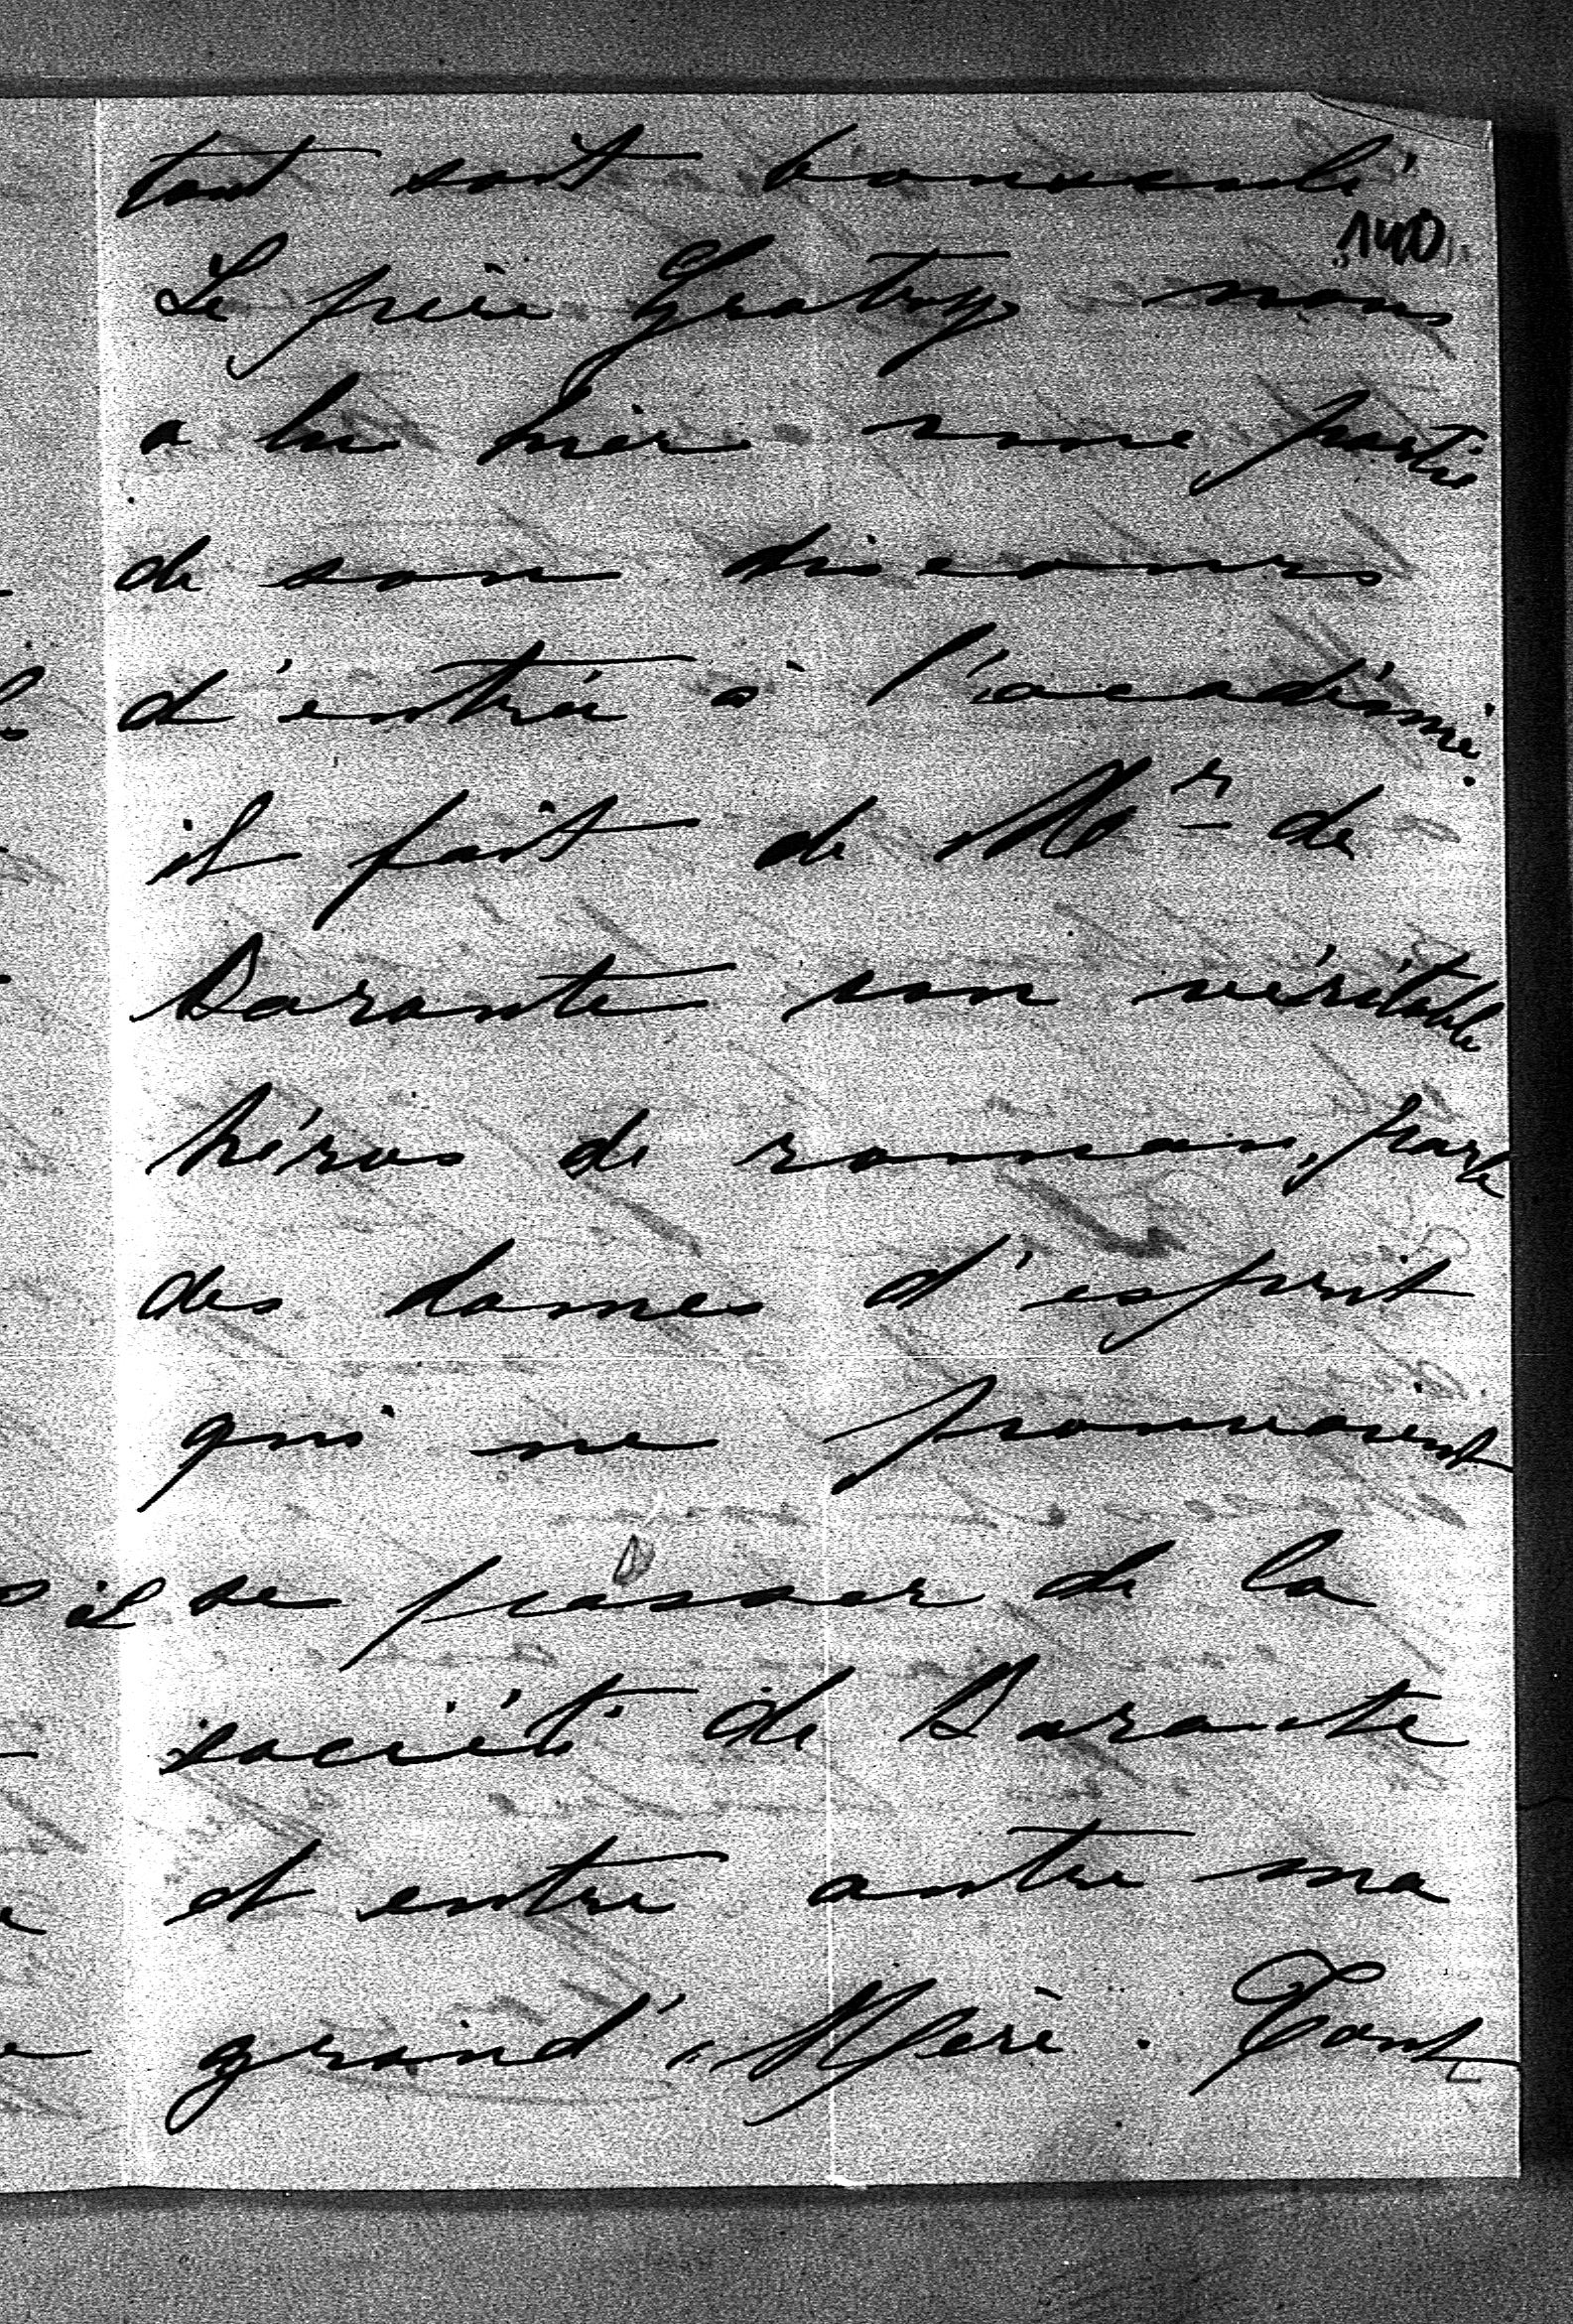 tout soit bouveulé
140
Le père Gratry nous
a lu hier une partie
de son discours
d'entrée à l'académie.
il fait de Mr de
Barante un véritable
héros de roman, parle
des dames d'esprit
qui ne pouvaient
se passer de la
société de Barante
et entre autre ma
grand'Mère. Tout